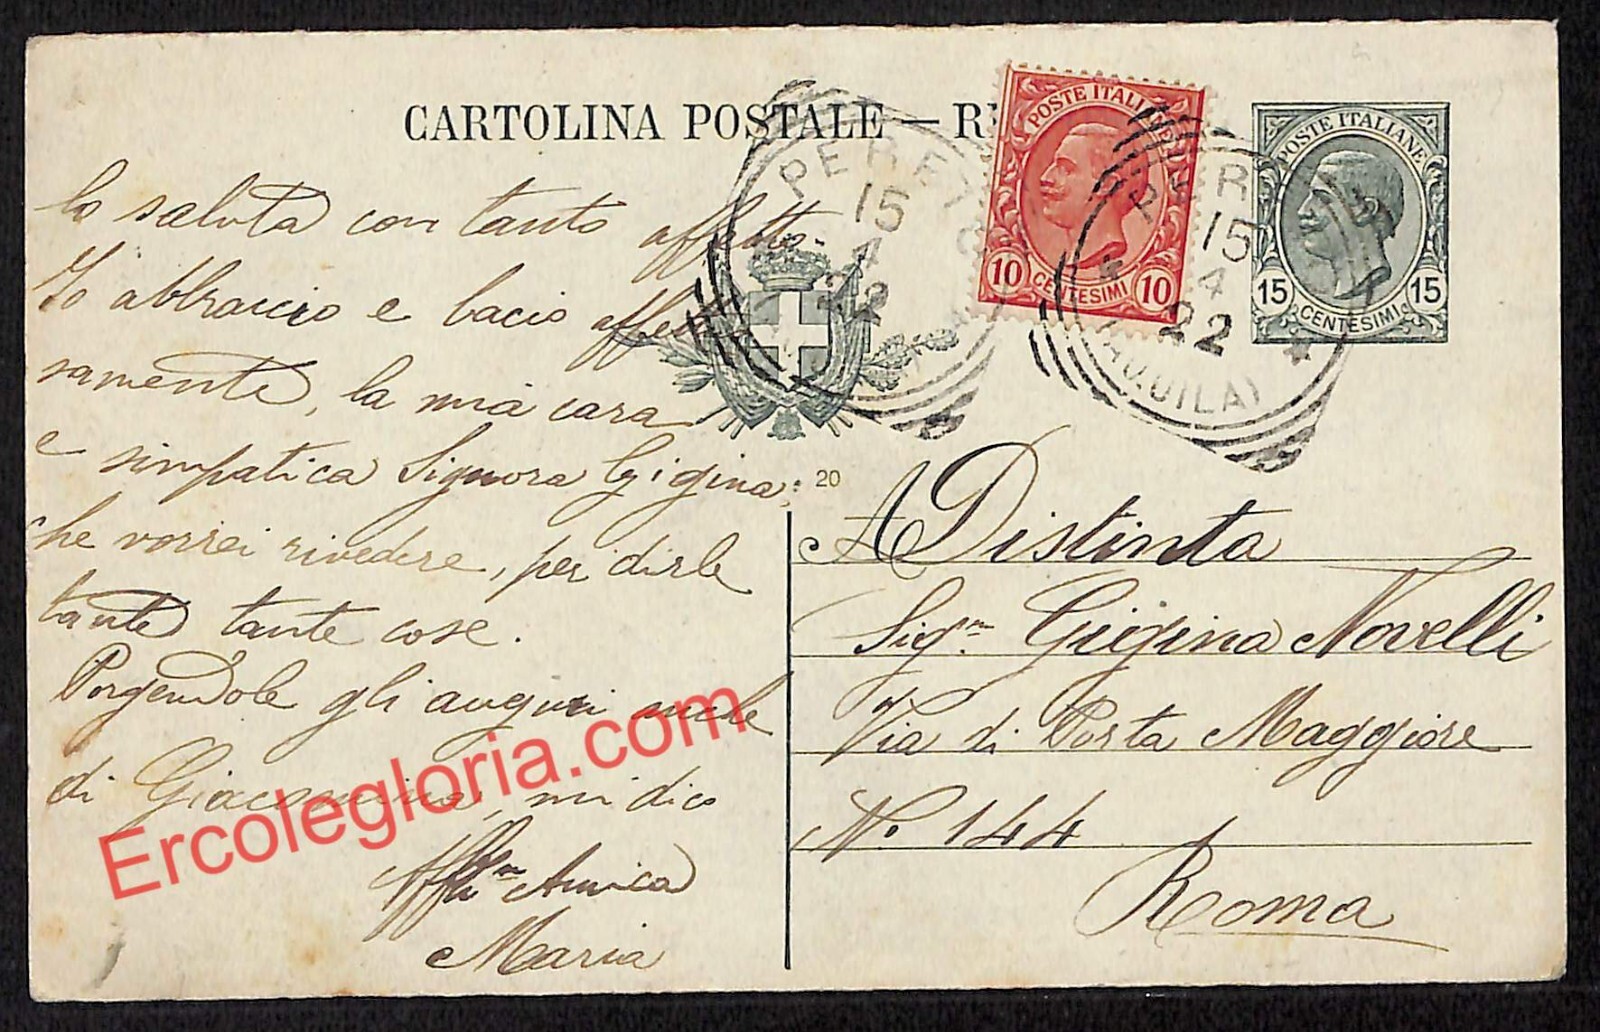 CARTOLINA POSTALE — R
POSTE ITALIANE
10 CENTESIMI 10
POSTE ITALIANE
15 CENTESIMI 15
PERETO
15
4
22
PER
15
4
22
(AQUILA)
lo saluta con tanto affetto.
Io abbraccio e bacio affettuo
samente, la mia cara
e simpatica Signora Gigina;
che vorrei rivedere, per dirle
tante tante cose.
Porgendole gli auguri anche
di Giacomina, mi dico
Aff.ma Amica
Maria
20
A Distinta
Sig.ra Gigina Novelli
Via di Porta Maggiore
No 144
Roma
Ercolegloria.com